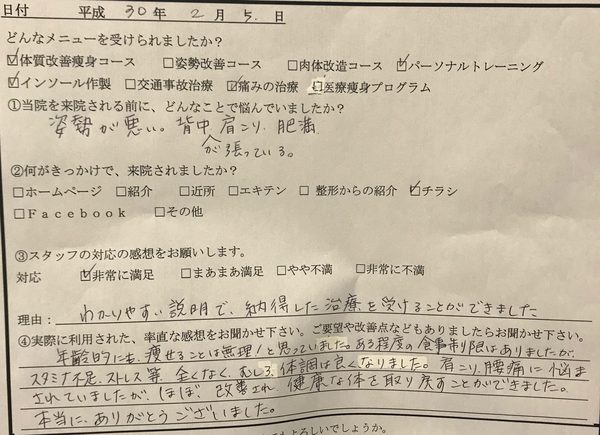 日付 平成 30年 2月 5.日
どんなメニューを受けられましたか?
☑体質改善痩身コース □姿勢改善コース □肉体改造コース ☑パーソナルトレーニング
☑インソール作製 □交通事故治療 ☑痛みの治療 ☑医療痩身プログラム
①当院を来院される前に、どんなことで悩んでいましたか?
姿勢が悪い。背中、肩こり、肥満
が張っている。
②何がきっかけで、来院されましたか?
□ホームページ □紹介 □近所 □エキテン □ 整形からの紹介 ☑チラシ
□Facebook □その他
③スタッフの対応の感想をお願いします。
対応 ☑非常に満足 □まあまあ満足 □やや不満 □非常に不満
理由: わかりやすい説明で、納得した治療を受けることができました
④実際に利用された、率直な感想をお聞かせ下さい。ご要望や改善点などもありましたらお聞かせ下さい。
年齢的にも、痩せることは無理!と思っていました。ある程度の食事制限はありましたが、
スタミナ不足、ストレス等、全くなく、むしろ、体調は良くなりました。肩こり、腰痛に悩ま
されていましたが、ほぼ、改善され、健康な体を取り戻すことができました。
本当に、ありがとうございました。
よろしいでしょうか。